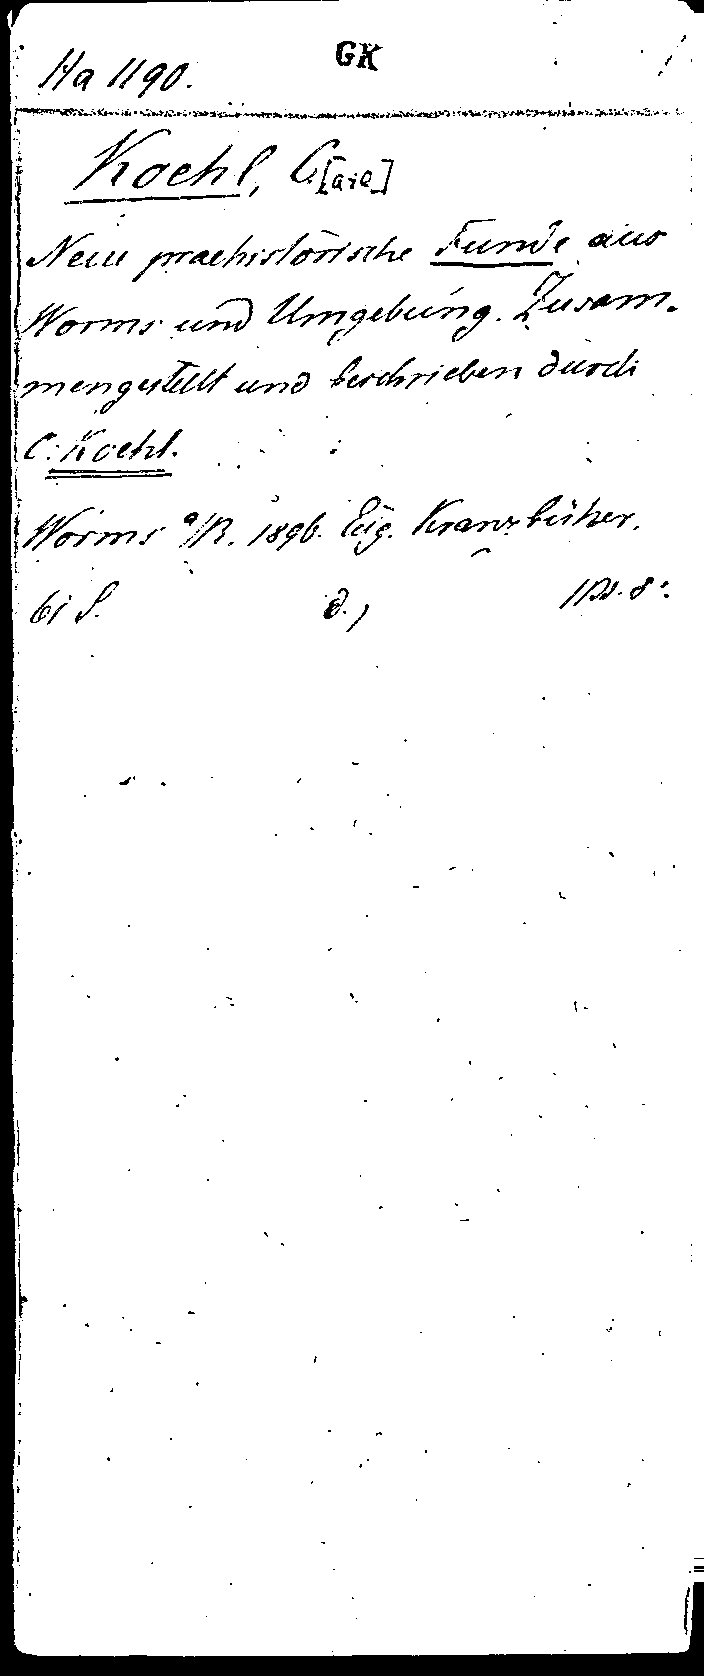 GK
Ha 1190.
Koehl, C[arl]
Neue praehistorische Funde aus
Worms und Umgebung. Zusam-
mengestellt und beschrieben durch
C. Koehl.
Worms a/R. 1896. Eug. Kranzbühler.
61 S. 8°.